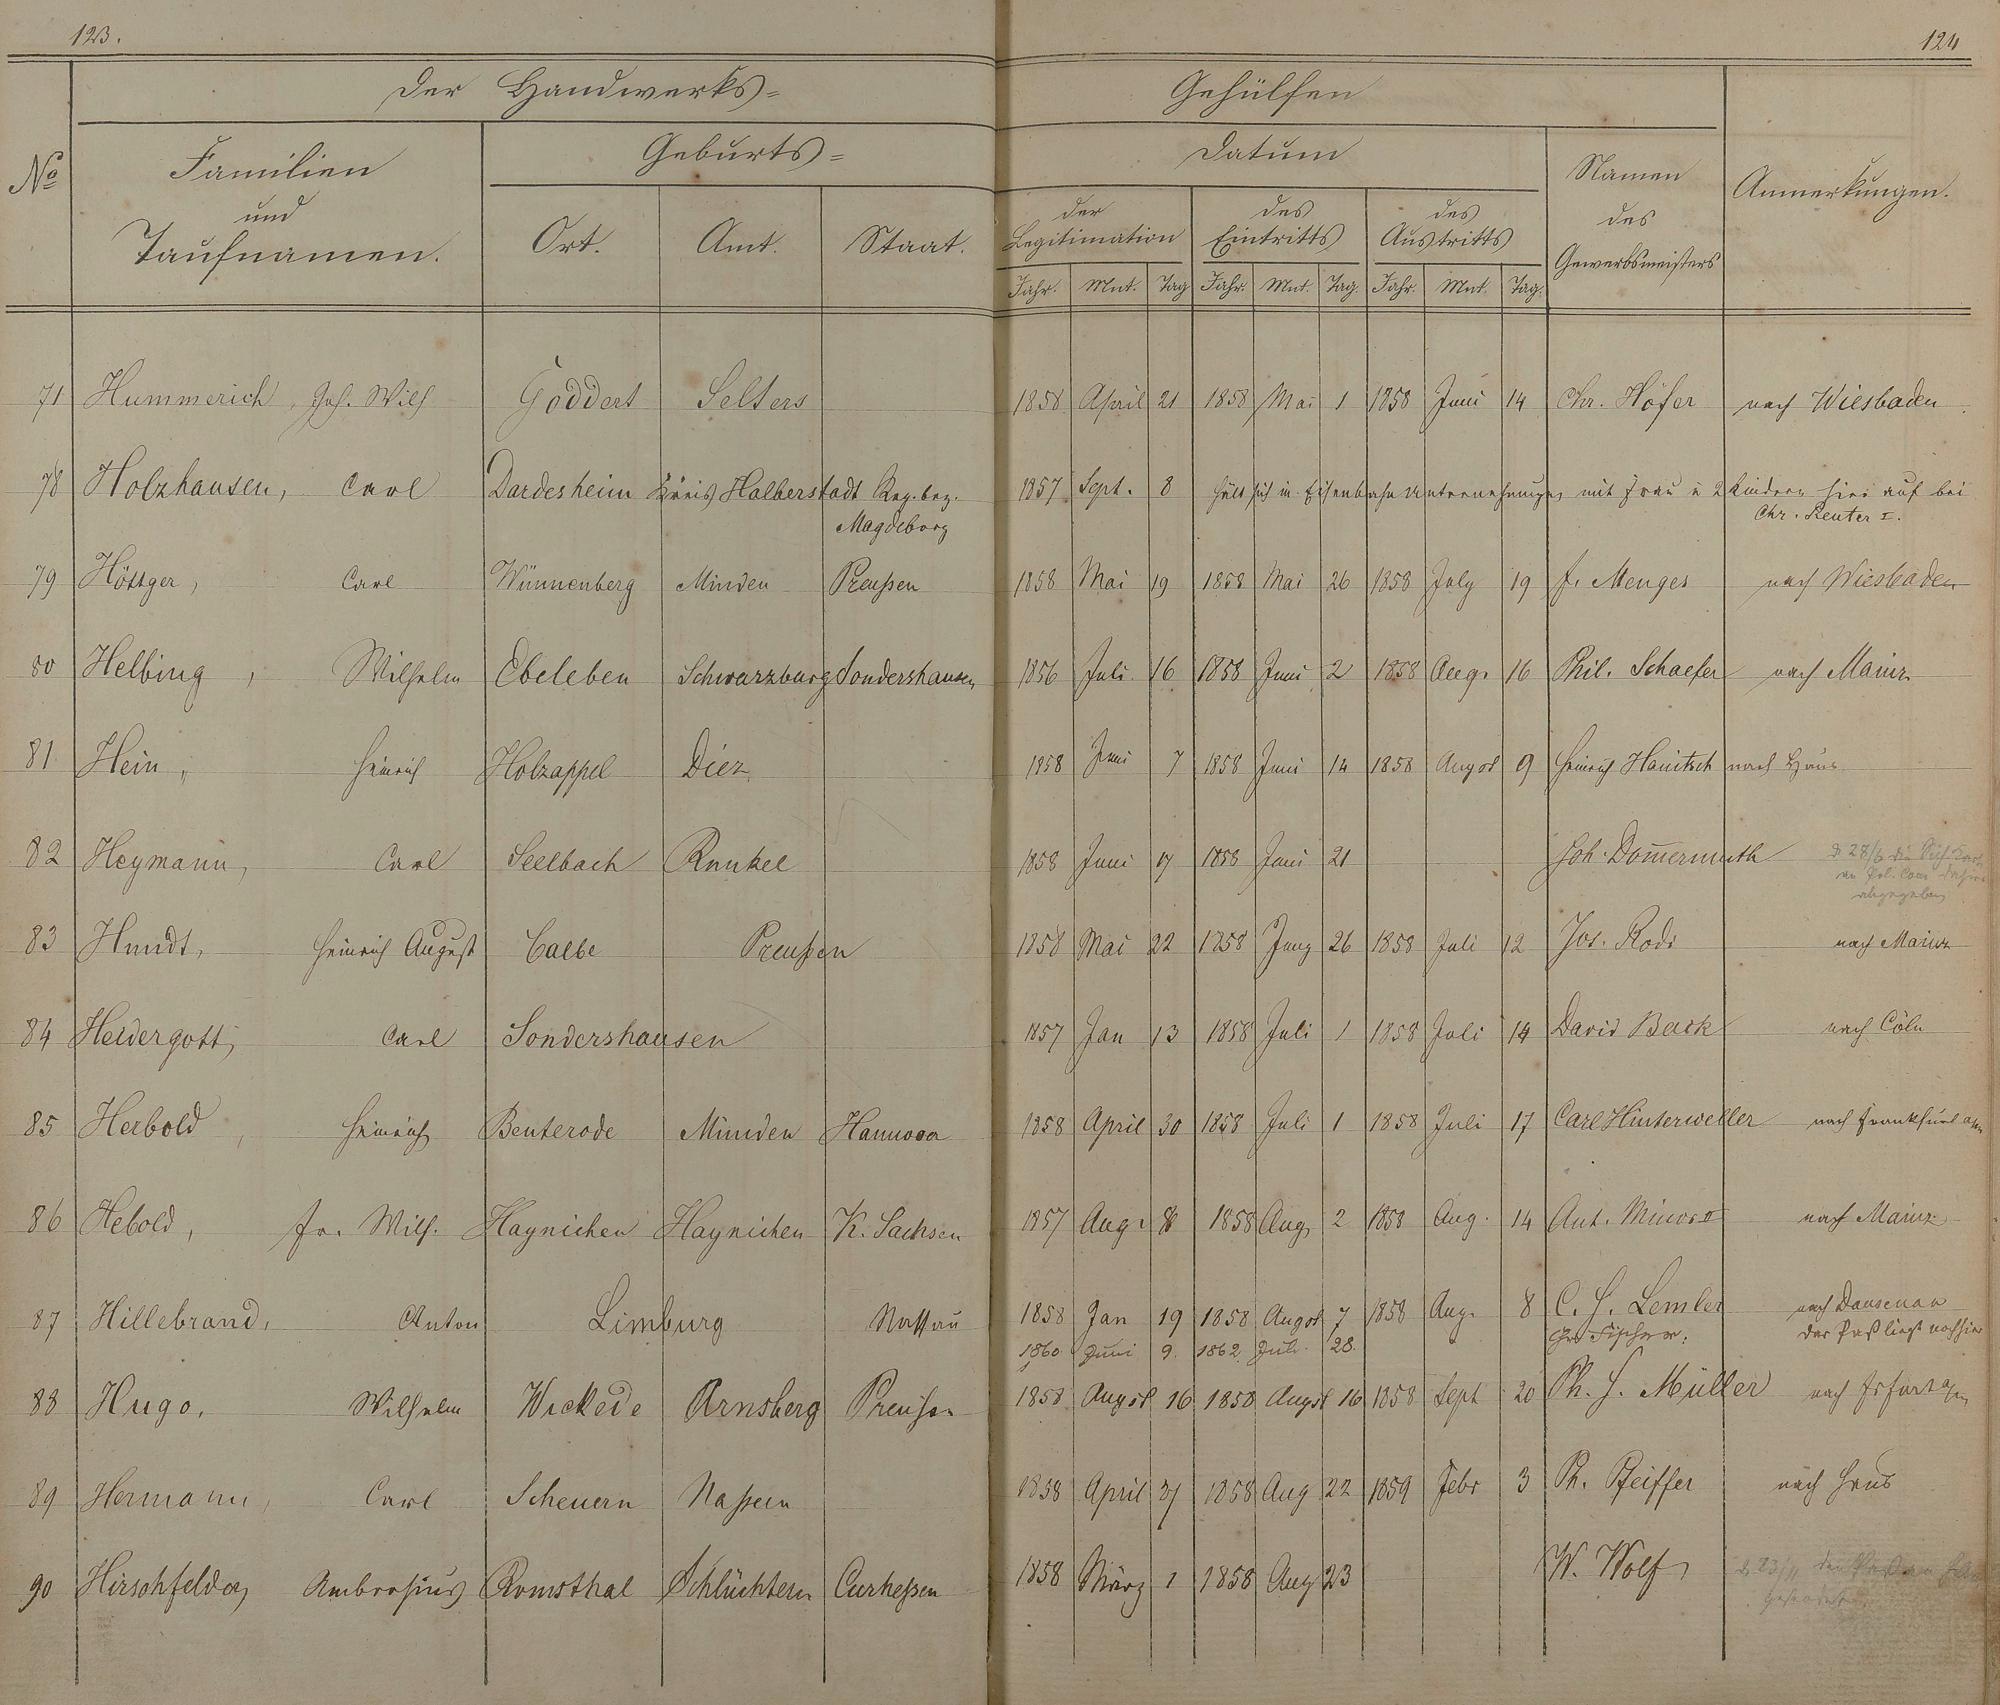 123.
124
Der Handwerks= Gehülfen
No
Familien
und
Taufnamen.
Geburts=
Ort. Amt. Staat.
Datum
der Legitimation
des Eintritts
des Austritts
Jahr. Mnt. Tag Jahr. Mnt. Tag. Jahr. Mnt. Tag.
Namen
des
Gewerbsmeisters
Anmerkungen.
71 Hummerich, Joh. Wilh Goddert Selters 1858 April 21 1858 Mai 1 1858 Juni 14 Chr. Höfer nach Wiesbaden
78 Holzhausen, Carl Dardesheim Kreis Halberstadt Reg. bez. 1857 Sept. 8 hält sich in Eisenbahn Unternehmungen mit Frau u 2 Kindern hier auf bei
Magdeborg Chr. Reuter I.
79 Höttger, Carl Wünnenberg Minden Preußen 1858 Mai 19 1858 Mai 26 1858 July 19 f. Menges nach Wiesbaden
80 Helbing, Wilhelm Ebeleben Schwarzburg Sondershausen 1856 Juli 16 1858 Juni 2 1858 Aug. 16 Phil. Schaefer nach Mainz
81 Hein, Heinrich Holzappel Diez 1858 Juni 7 1858 Juni 14 1858 Augst 9 Heinrich Hanitsch nach Haus
82 Heymann, Carl Seelbach Runkel 1858 Juni 17 1858 Juni 21 Joh. Domermuth
abgegeben
83 Hundt, Heinrich August Calbe Preußen 1858 Mai 22 1858 Juny 26 1858 Juli 12 Jos. Rodi nach Mainz
84 Heidergott, Carl Sondershausen 1857 Jan 13 1858 Juli 1 1858 Juli 14 David Back nach Cöln
85 Herbold, Heinrich Benterode Münden Hannover 1858 April 30 1858 Juli 1 1858 Juli 17 Carl Hinterweller nach Frankfurt a/m
86 Hebold, Fr. Wilh. Haynichen Haynichen K. Sachsen 1857 Aug. 8 1858 Aug 2 1858 Aug. 14 Ant. Minor II nach Mainz
87 Hillebrand, Anton Limburg Nassau 1858 Jan 19 1858 Augst 7 1858 Aug. 8 C. H. Lemler nach Dausenau
1860 Juni 9. 1862 Juli. 28. Fischer. Der Paß liegt noch hier
88 Hugo, Wilhelm Wickede Arnsberg Preußen 1858 Augst 16 1858 Augst 16 1858 Sept 20 Ph. H. Müller nach
89 Hermann, Carl Scheuern Nassau 1858 April 27 1858 Aug 22 1859 Febr 3 Ph. Pfeiffer nach Haus
90 Hirschfelder, Ambrosius Romsthal Schlüchtern Curhessen 1858 März 1 1858 Aug 23 W. Wolf